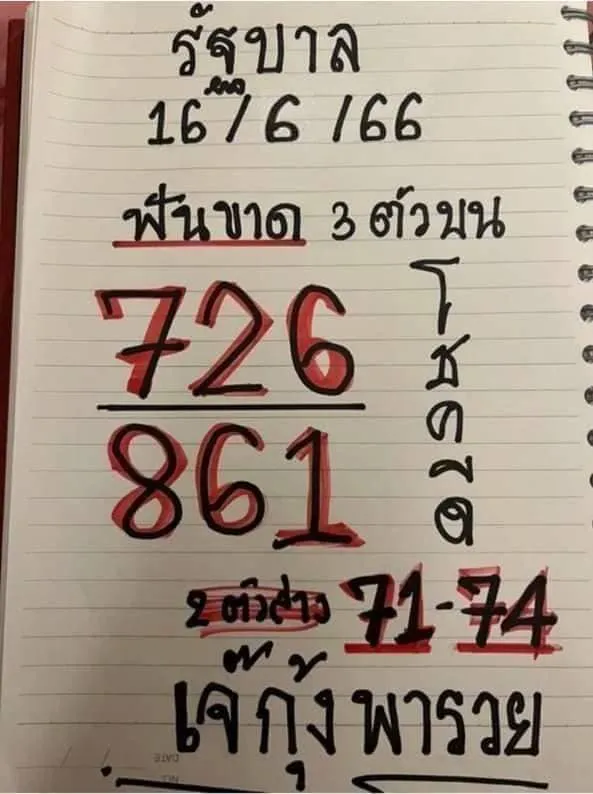 รัฐบาล
16/6/66
ฟันขาด 3 ตัวบน
726
861
โชคดี
2 ตัวล่าง 71-74
เจ๊กุ้ง พารวย
DATE
NO.